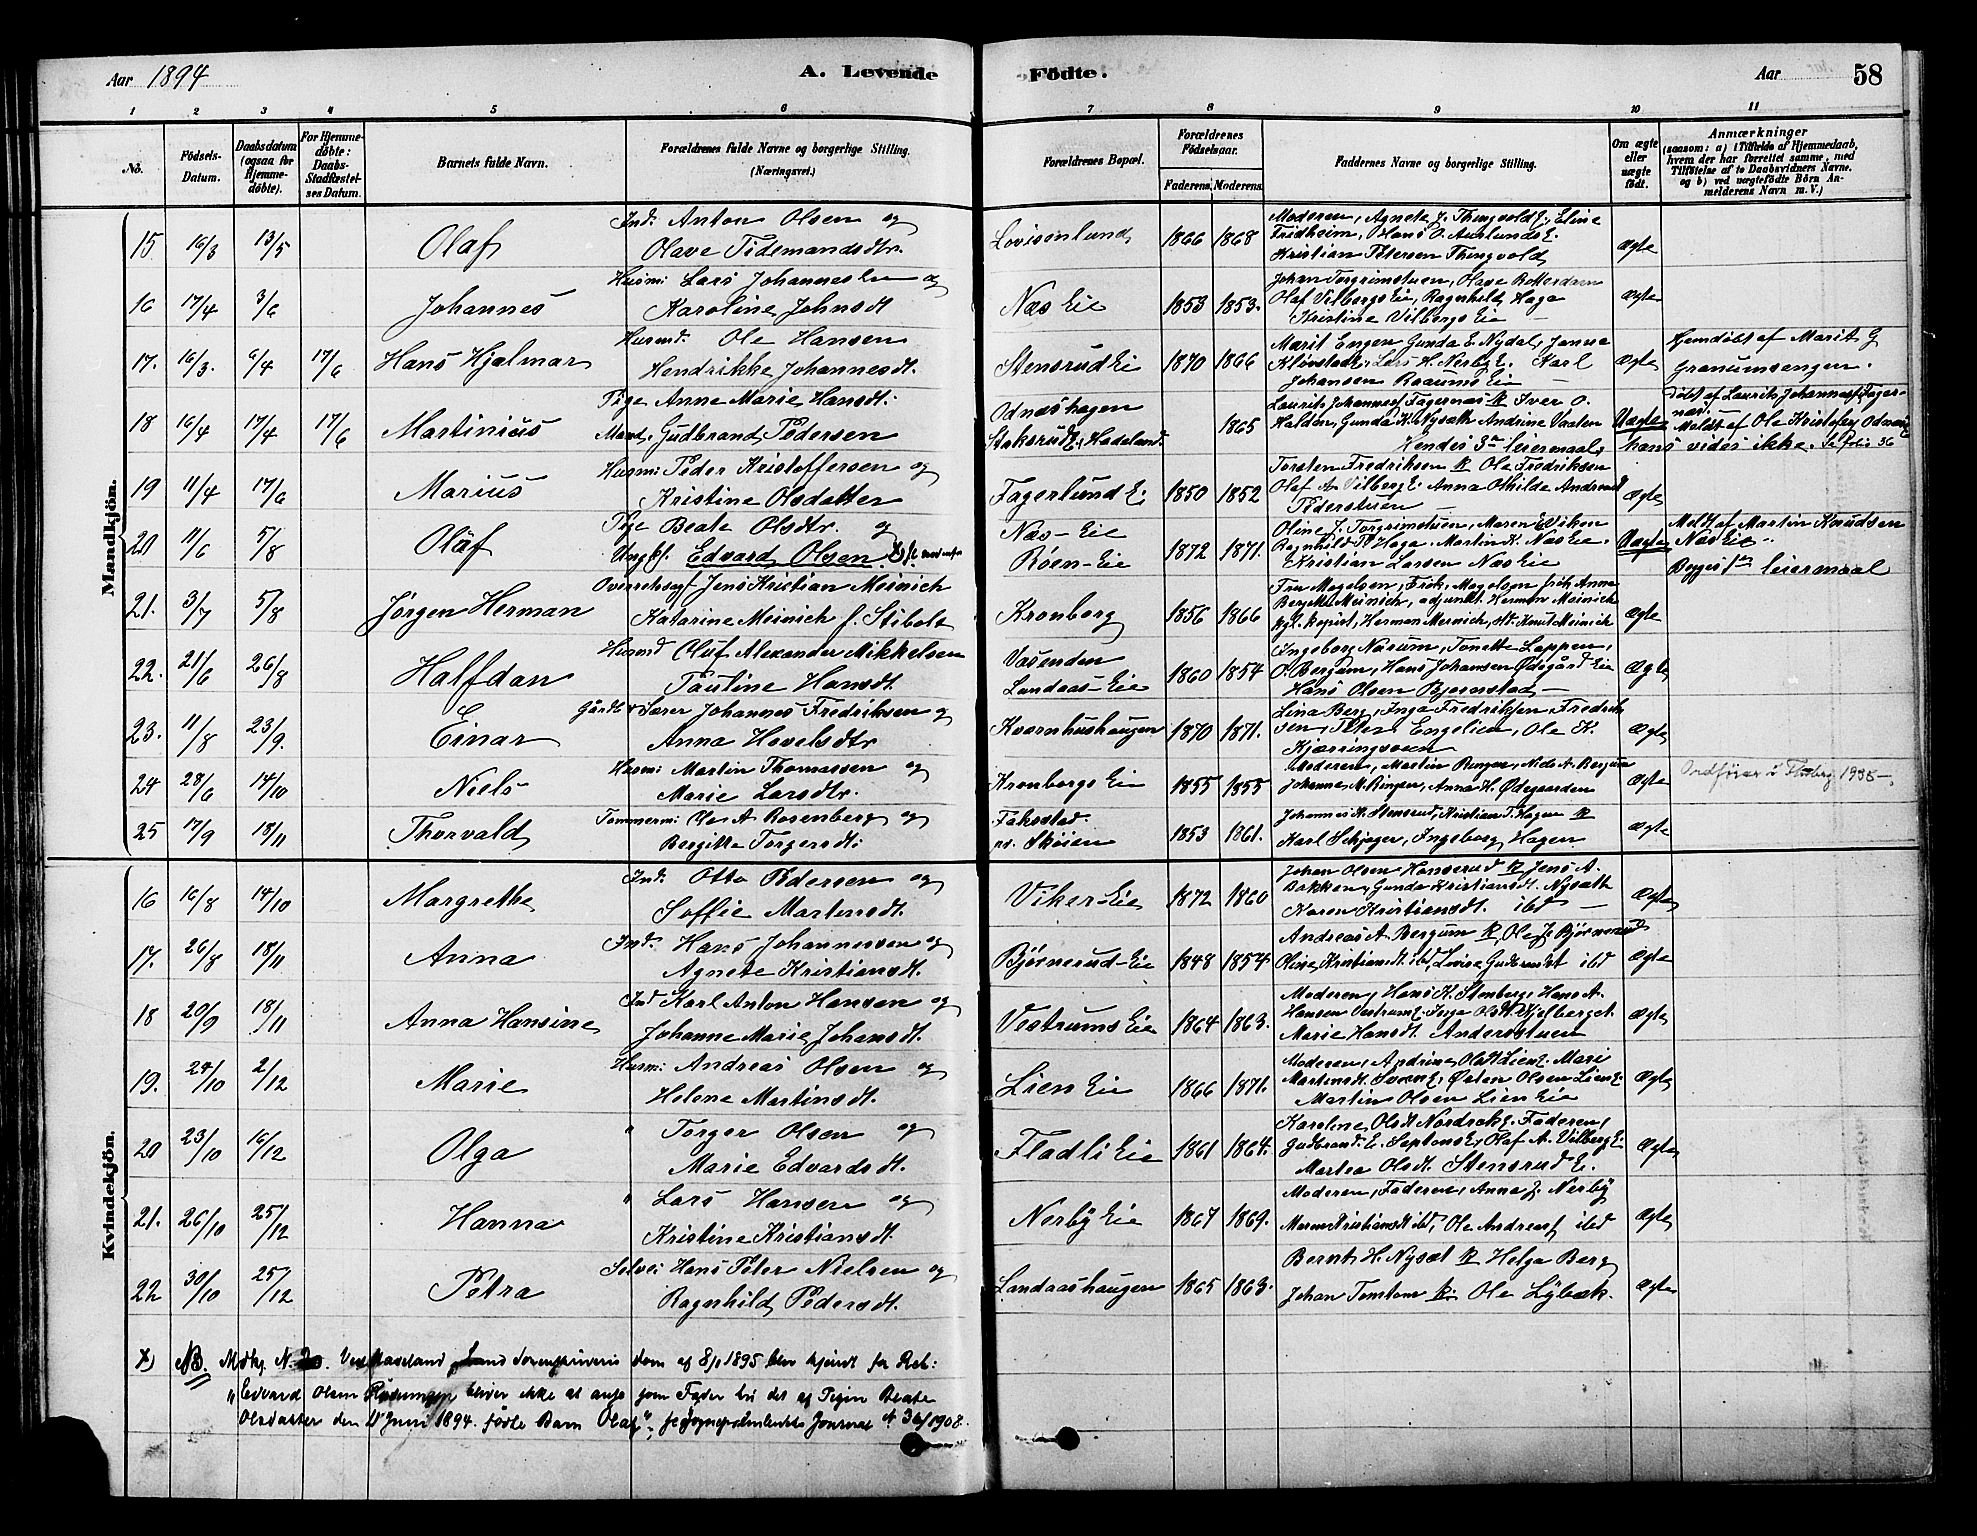 Aar 1894
A. Levende
Födte.
Aar
58
1 2 3 4 5 6 7 8 9 10 11
No.
Födsels-Datum.
Daabsdatum (ogsaa for Hjemmedöbte).
For Hjemmedöbte: Daabs-Stadfæstelses Datum.
Barnets fulde Navn.
Forældrenes fulde Navne og borgerlige Stilling. (Næringsvei.)
Forældrenes Bopæl.
Forældrenes Födselsaar.
Faderens. Moderens.
Faddernes Navne og borgerlige Stilling.
Om ægte eller uægte födt.
Anmærkninger
(saasom: a) i Tilfælde af Hjemmedaab, hvem der har forrettet samme, med Tilföielse af to Daabsvidners Navne, og b) ved uægtefödte Börn Anmelderens Navn m.V.)
Mandkjön.
15 16/3 13/5 Olaf Ind: Anton Olsen og
Olave Tidemandsdtr. Lovisenlund 1866 1868
Moderen, Agnete J. Thingvold E., Eline
Fridheim, Hans O. Aaslunds E.
Kristian Petersen Thingvold Ægte
16 17/4 3/6 Johannes Husm: Lars Johannesen og
Karoline Johnsdt Næs Eie 1853 1853.
Johan Torgrimstuen, Olave Rotterdam
Olaf Vilbergs Eie, Ragnhild Haga
Kristine Vilbergs Eie — Ægte
17. 16/3. 6/4 17/6 Hans Hjalmar Husmd. Ole Hansen
Hendrikke Johannesdt. Stensrud Eie 1870 1866
Marit Engen Gunda E. Nydal, Janna
Klønstad, Lars H. Nerby E. Karl
Johansen Raaums Eie — Ægte
Hjemdöbt af Marit G
Granumsengen.
18 16/4 17/4 17/6 Martinius Pige Anne Marie Hansdt.
Gudbrand Pedersen Odnæshagen
Hadeland 1865
Laurits Johannes Fagernæs K Iver O.
Halden, Gunda K. Nysæth Andrine Vasten
Hendes 3die leiermaal, Uægte
Döbt af Laurits Johannes Fagernæs.
Meldt af Ole Kristofers Odnæs E
hans vides ikke. Se folio 36
19 11/4 17/6 Marius Husm: Peder Kristoffersen og
Kristine Olsdatter Fagerlund E. 1850 1852
Torsten Fredriksen K Ole Fredriksen
Olaf A. Vilberg E. Anna Othilde Andreasdt
Pederstuen — Ægte
20 11/6 5/8 Olaf Pige Beate Olsdtr. og
Ungk. Edvard Olsen. x)
Næs-Eie
Røen-Eie 1872 1871.
Oline J. Torgrimstuen, Maren E Viken
Ragnhild P. Haga. Martin K. Næs Eie.
Kristian Larsen Næs Eie Uægte
Meldt af Martin Knudsen
Næs Eie.
Begges 1ste leiermaal
21. 3/7 5/8 Jørgen Herman Overretssgf Jens Kristian Meinich
Katarine Meinich f. Stibolt Kronborg 1856 1866
Fru Magelsen, Frøk. Magelsen, frøk Anna
Bergitte Meinich, adjunkt Herman Meinich
Kgl. kopist, Herman Meinich, stt. Knut Meinich Ægte
22. 21/6 26/8 Halfdan Husmd Oluf Alexander Mikkelsen
Pauline Hansdt. Vasenden
Landaas-Eie 1860 1854
Ingeborg Narum, Tonette Lappen,
O. Bergum, Hans Johansen Ødegård Eie
Hans Olsen Bjørnstad — Ægte
23. 11/8 23/9. Einar Gårdbr & Lærer Johannes Fredriksen og
Anna Hovelsdtr Kvernhushaugen 1870 1871.
Lina Berg, Inga Fredriksen, Fredriksen
Peter Engelien, Ole K.
Kjærringvosen Ægte
24 28/6 14/10 Niels Husm: Martin Thomassen og
Marie Larsdtr. Kronborgs Eie 1855 1855
Moderen, Martin Ringen, Niels A. Bergum
Johanne M. Ringen, Anna H. Ødegaarden Ægte
Ordfører i Fluberg 1935 —
25 17/9 18/11 Thorvald Tømmerm: Ole A Rosenberg og
Bergitte Torgersdt: Fakostad
nr. Skøien 1853 1861.
Johannes K. Stensrud, Kristian T. Hagen K
Karl Schjager, Ingeborg Hagen Ægte
Kvindekjön.
16 16/8 14/10 Margrethe Ind. Otto Pedersen og
Soffie Martinsdt. Viker-Eie 1872 1860
Johan Olsen Hanserud K Jens A.
Bakken, Gunda Kristiansdt. Nysæth
Karen Kristiansdt. ibd — Ægte
17. 26/8 18/11 Anna Ind. Hans Johannessen og
Agnete Kristiansdt. Bjørnerud-Eie 1848 1854.
Andreas A Bergum K Ole J. Bjørnerud
Oline Kristiansdt ibd, Lovise Gudbrandsdt ibd Ægte
18 20/9 18/11 Anna Hansine Ind Karl Anton Hansen og
Johanne Marie Johansdt. Vestrums Eie 1864 1863.
Moderen, Hans K. Stenberg, Hans A.
Hansen Vestrum E. Inga Olsdt Kjelberget.
Marie Hansdt. Anderstuen Ægte
19. 24/10 2/12 Marie Husm: Andreas Olsen og
Helene Martinsdt. Lien Eie 1866 1871.
Moderen, Andrine Olsdt Lien E. Mari
Martinsdt. Sveen E, Østen Olsen Lien E.
Martin Olsen Lien Eie Ægte
20 23/10 16/12 Olga " Torger Olsen og
Marie Edvardsdt. Fladli Eie 1861 1864.
Karoline Olsdt Nordrak E. Faderen,
Gudbrand E. Septon E, Olaf A. Vilberg E.
Martea Olsdt. Stensrud E. Ægte
21. 26/10 25/12 Hanna " Lars Hansen og
Kristine Kristiansdt. Nerby Eie 1867 1869.
Moderen, Faderen, Anna J. Nerby
Maren Kristiansdt ibd, Ole Andreas ibd Ægte
22 30/10 25/12 Petra Selvei: Hans Peter Nielsen og
Ragnhild Pedersdt. Landaashaugen 1865 1863.
Bernt H. Nysæt K Helga Berg
Johan Tomtom K. Ole Lybæk. Ægte
x) NB. Mdkj. N. 20. Ved Hadeland Land Sorenskriveris dom af 8/1 1895 blev kjendt for Ret:
"Edvard Olsen bliver ikke at anse som Fader til det af Pigen Beate
Olsdatter den 11 Juni 1894 fødte Barn Olaf", Journal N 36/1908.